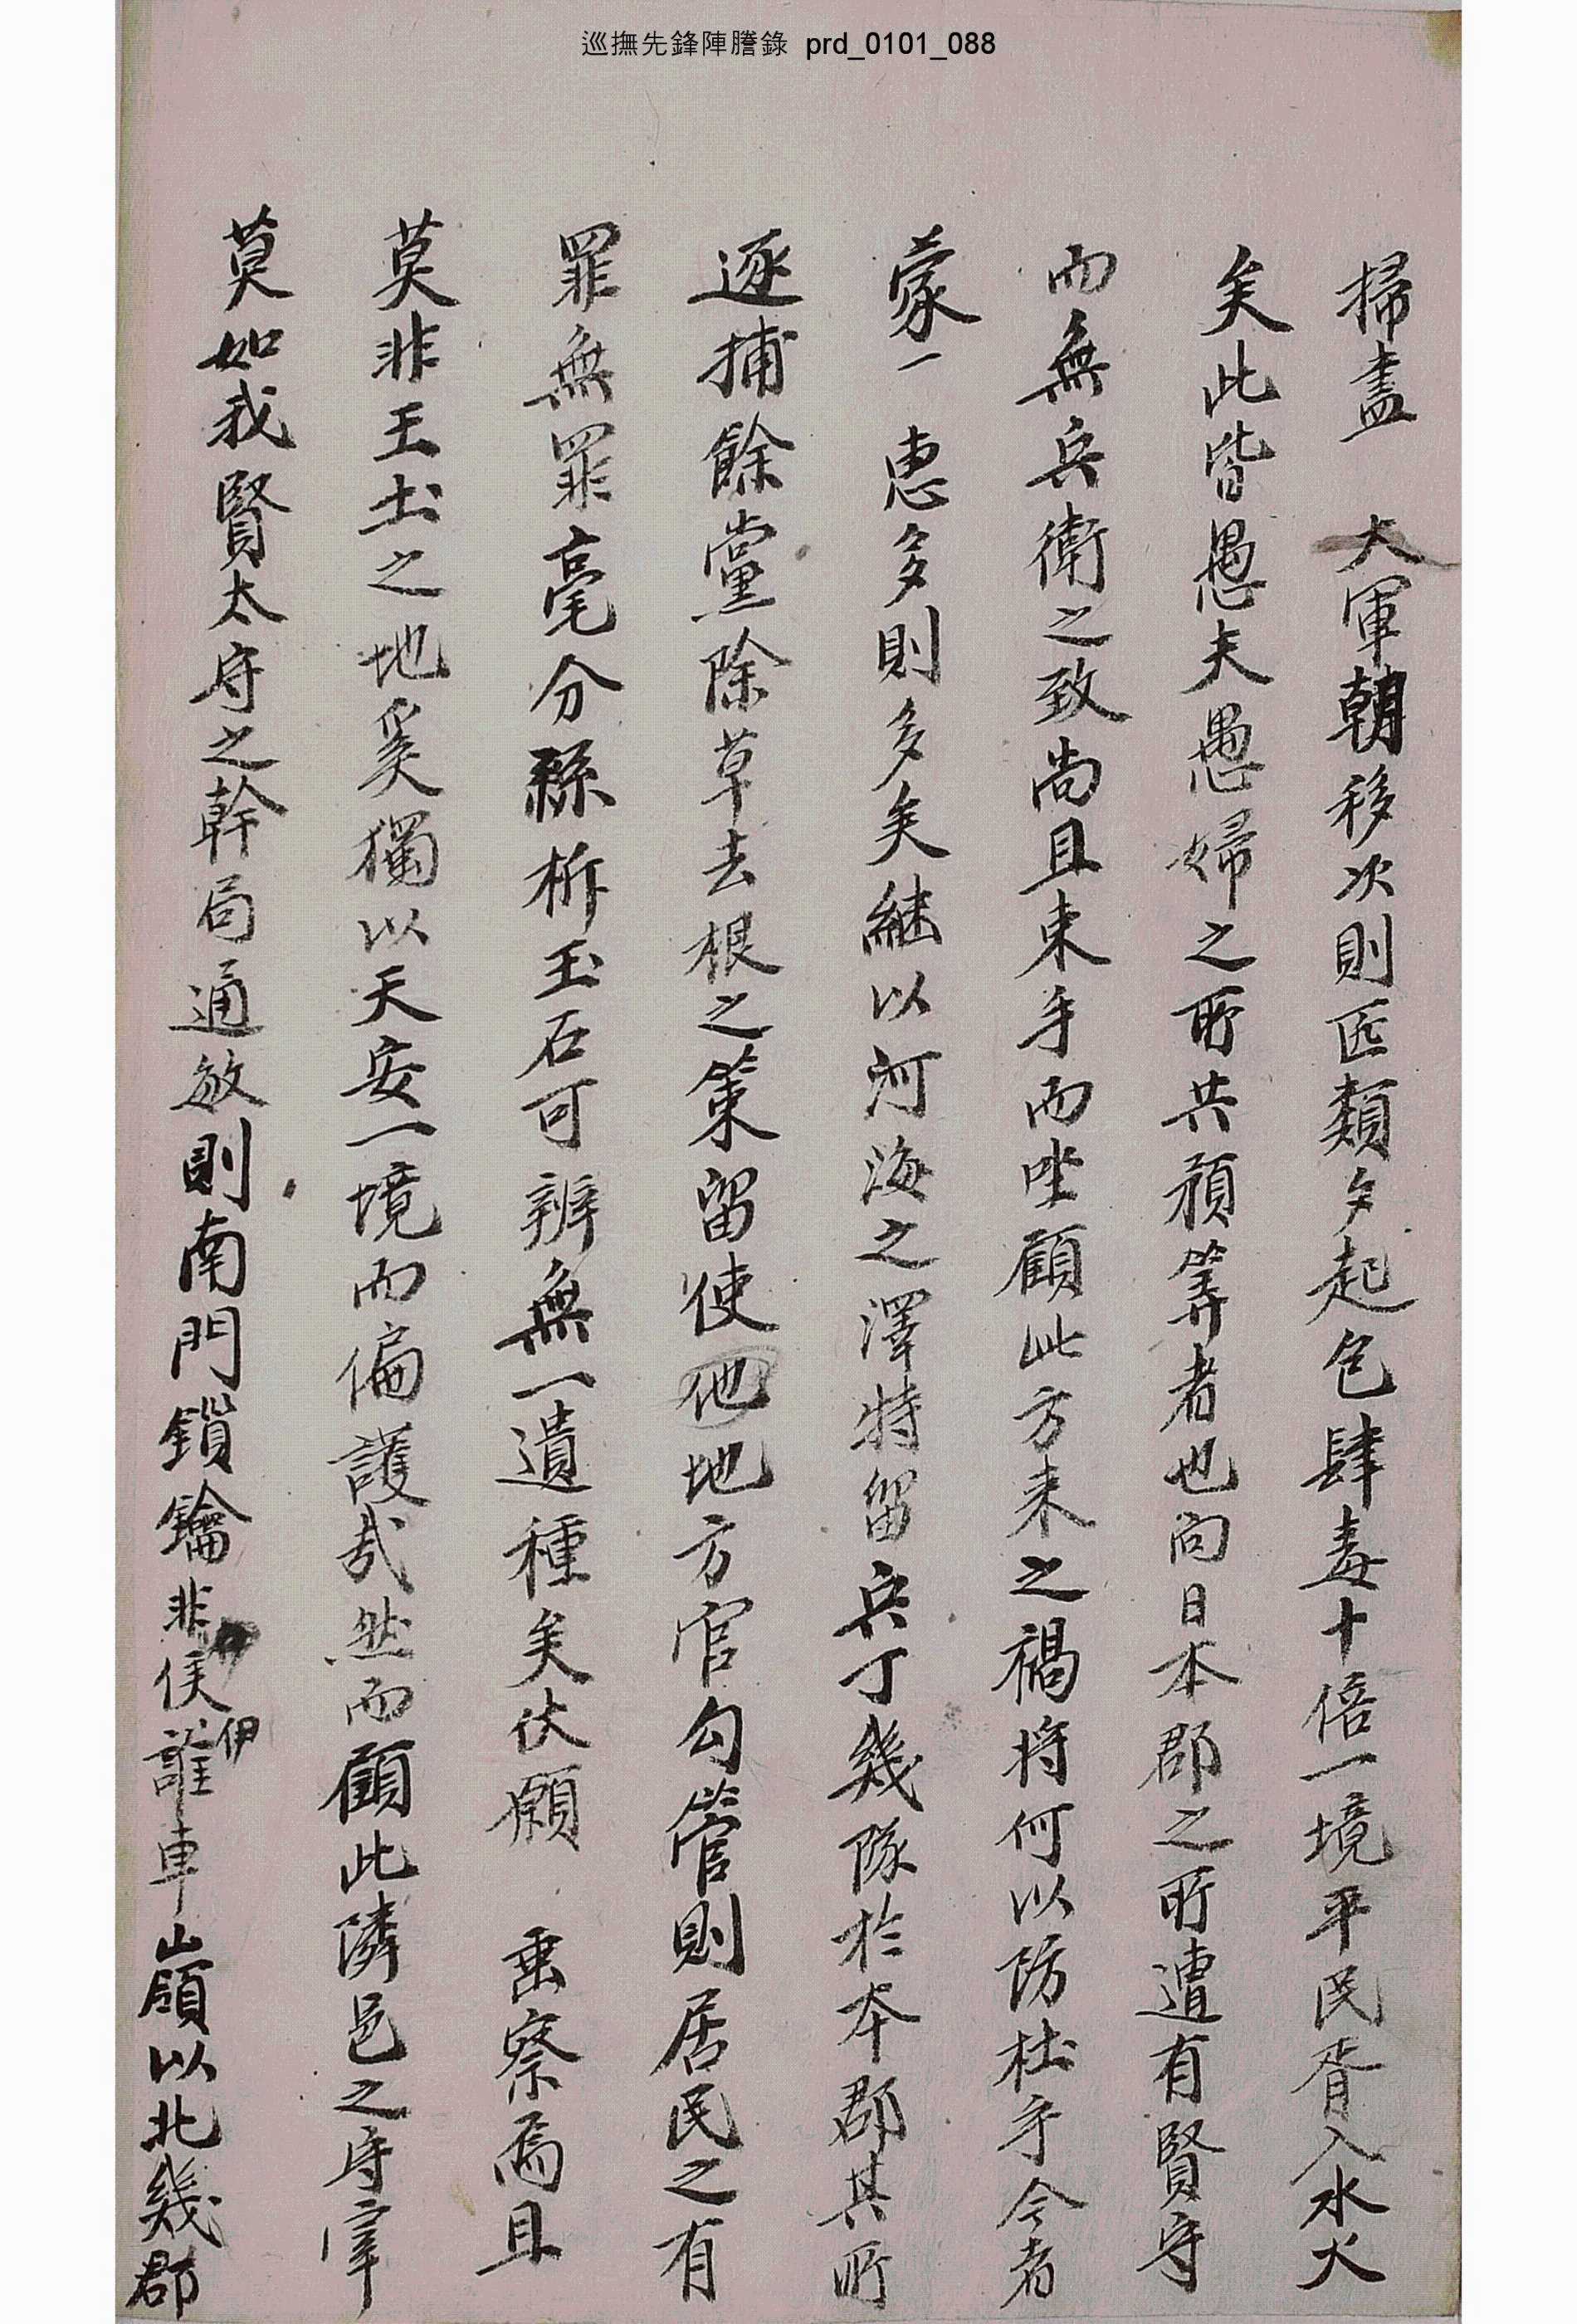 巡撫先鋒陣謄錄 prd_0101_088
掃盡 大軍朝移次則匪類夕起包肆毒十倍一境平民胥入水火
矣此皆愚夫愚婦之所共預筭者也向日本郡之所遭有賢守
而無兵衛之致尙且束手而坐顧此方来之禍將何以防杜乎今者
蒙一 惠多則多矣継以河海之澤特留兵丁幾隊於本郡其所
逐捕餘黨除草去根之策留使他地方官勾管則居民之有
罪無罪毫分縣析玉石可辨無一遺種矣伏願 垂察焉且
莫非王土之地奚獨以天安一境而偏護㦲然而顧此隣邑之守宰
莫如我賢太守之幹局通敏則南門鎖鑰非侯伊誰車嶺以北幾郡